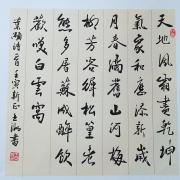 天地風霜盡乾坤
氣象和歷添新歲
月春滿舊山河梅
柳芳容稺松篁老
態多屠蘇成醉飲
歡咲白雲窩
葉顒詩 壬寅新正 書